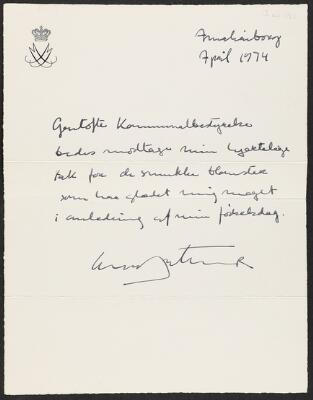 Amalienborg
April 1974
Gentofte Kommunalbestyrelse
bedes modtage min hjertelige
tak for de smukke blomster
som har glædet mig meget
i anledning af min fødselsdag.